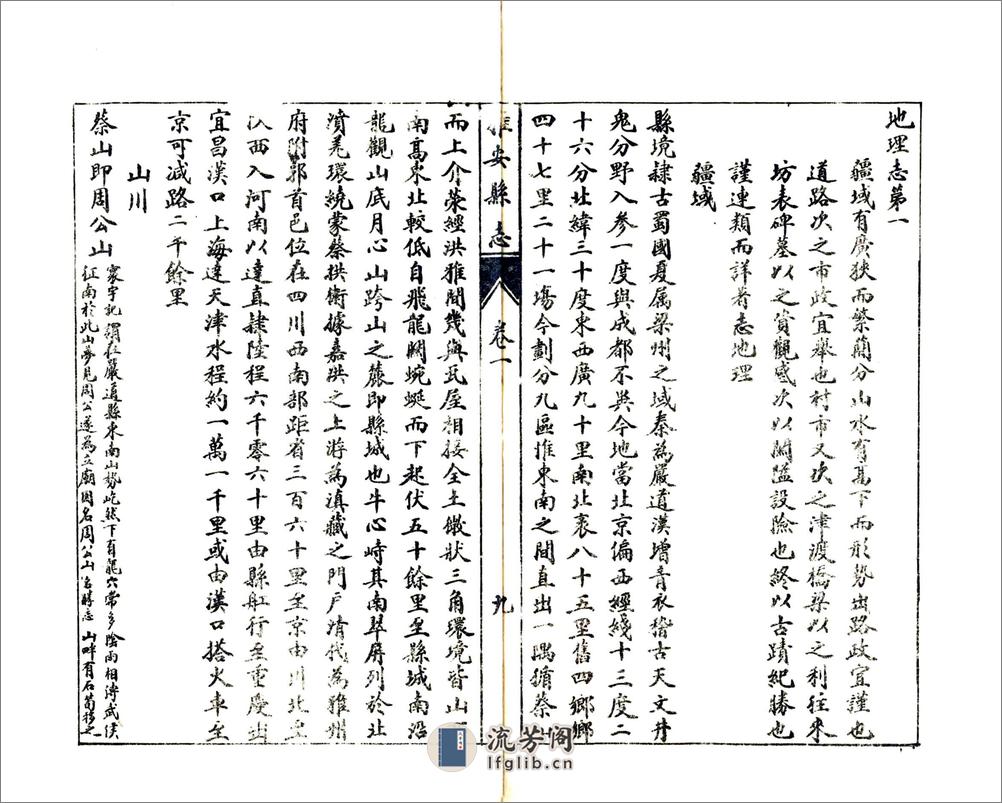 地理志第一
疆域有廣狹而繁簡分山水有高下而形勢出路政宜謹也
道路次之市政宜舉也村市又次之津渡橋梁以之利往來
坊表碑墓以之資觀感次以關隘設險也終以古蹟紀勝也
謹連類而詳著志地理
疆域
縣境隸古蜀國夏属梁州之域秦為嚴道漢增青衣稽古天文井
鬼分野入參一度與成都不異今地當北京偏西經綫十三度二
十六分北緯三十度東西廣九十里南北袤八十五里舊四鄉鄉
四十七里二十一塲今劃分九區惟東南之間直出一隅循蔡
雅安縣志
卷一
九
而上介榮經洪雅間幾與瓦屋相接全土儼狀三角環境皆山
南高東北較低自飛龍關蜿蜒而下起伏五十餘里至縣城南沿
龍觀山底月心山跨山之麓即縣城也牛心峙其南翠屏列於北
濆羌環繞蒙蔡拱衛據嘉洪之上游為滇藏之門戶清代為雅州
府附郭首邑位在四川西南部距省三百六十里至京由川北
西入河南以達直隸陸程六千零六十里由縣舡行至重慶出
宜昌漢口上海達天津水程約一萬一千里或由漢口搭火車至
京可减路二千餘里
山川
蔡山即周公山
寰宇記 在嚴道縣東南山勢屹然下有龍穴常多陰雨相傳武侯
征南於此山夢見周公遂為立廟因名周公山名勝志 山畔有石筍